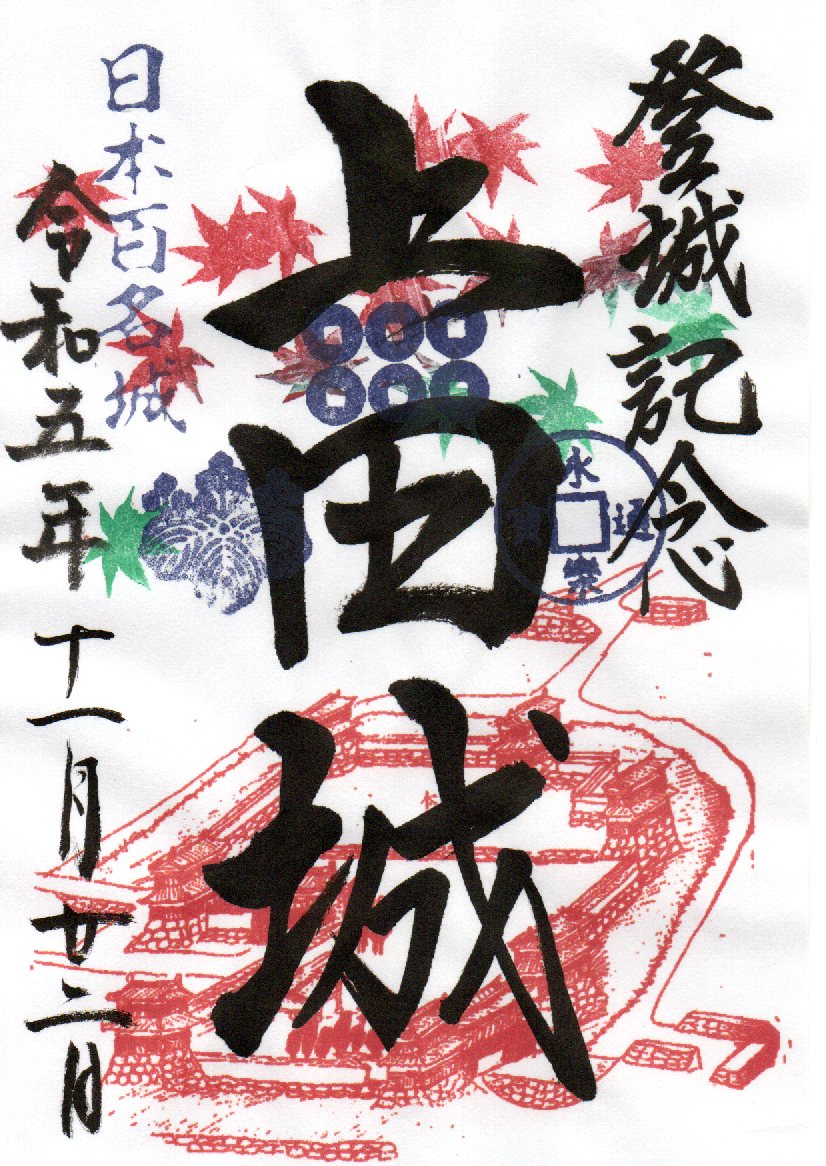 登城記念
上田城
永樂通寳
日本百名城
令和五年十一月廿二日
本